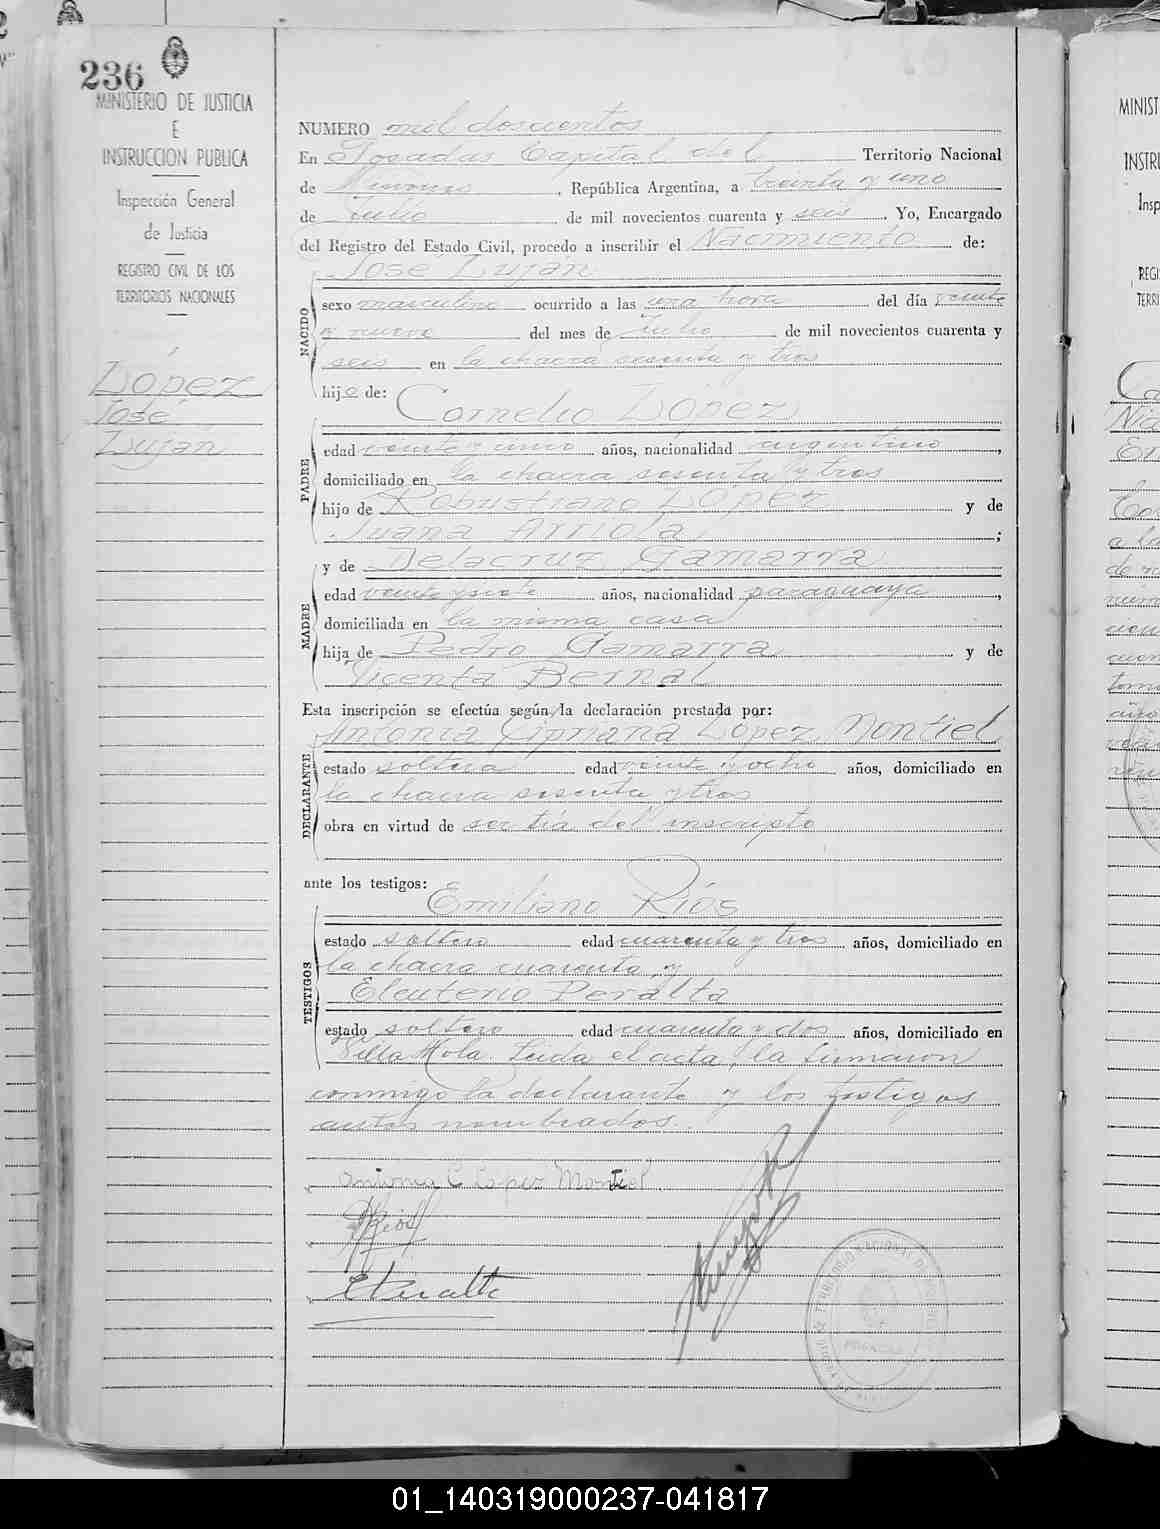 236
MINISTERIO DE JUSTICIA
E
INSTRUCCION PUBLICA
Inspección General
de Justicia
REGISTRO CIVIL DE LOS
TERRITORIOS NACIONALES
López
José
Luján
NUMERO mil doscientos
En Posadas Capital del Territorio Nacional
de Misiones, República Argentina, a treinta y uno
de Julio de mil novecientos cuarenta y seis. Yo, Encargado
del Registro del Estado Civil, procedo a inscribir el Nacimiento de:
José Luján
NACIDO
sexo masculino ocurrido a las una hora del día veinte
y nueve del mes de Julio de mil novecientos cuarenta y
seis en la chacra sesenta y tres
hijo de:
Cornelio López
PADRE
edad veinte y cinco años, nacionalidad argentino,
domiciliado en la chacra sesenta y tres
hijo de Robustiano López y de
Juana Arriola;
y de Delacruz Gamarra
MADRE
edad veinte y siete años, nacionalidad paraguaya,
domiciliada en la misma casa
hija de Pedro Gamarra y de
Vicenta Bernal
Esta inscripción se efectúa según la declaración prestada por:
Antonia Cipriana López Montiel
DECLARANTE
estado soltera edad veinte y ocho años, domiciliado en
la chacra sesenta y tres
obra en virtud de ser tía del inscripto
ante los testigos:
Emiliano Ríos
TESTIGOS
estado soltero edad cuarenta y tres años, domiciliado en
la chacra cuarenta y
Eleuterio Peralta
estado soltero edad cuarenta y dos años, domiciliado en
Villa Mola. Leida el acta, la firmaron
conmigo la declarante y los testigos
antes nombrados.
Antonia C Lopez Montiel
Rios
E Peralta
MINIST
INSTRU
Insp
REGI
TERRI
01_140319000237-041817